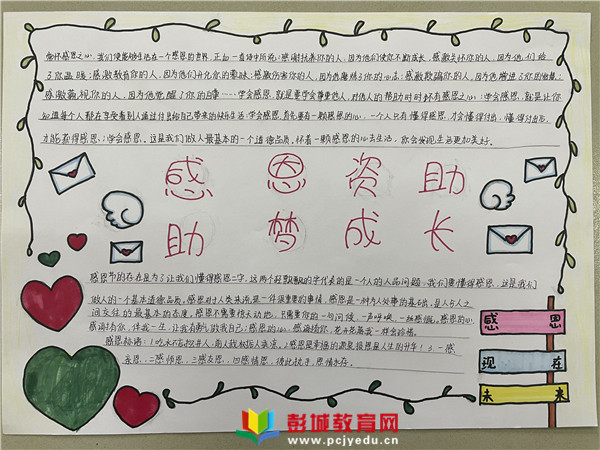 常怀感恩之心,我们便能够生活在一个感恩的世界。正如一首诗中所说:感谢扶养你的人,因为他们使你不断成长,感激关怀你的人,因为他们给
了你温暖;感激教育你的人,因为他们开化你的蒙昧;感激伤害你的人,因为他磨炼了你的心志;感激欺骗你的人,因为他增进了你的智慧;
感激藐视你的人,因为他觉醒了你的自尊……学会感恩,就是要学会尊重他人,对他人的帮助时时怀有感恩之心;学会感恩,就是让你
知道每个人都在享受着别人通过付出给自己带来的快乐生活;学会感恩,首先要有一颗感恩的心,一个人只有懂得感恩,才会懂得付出,懂得付出后,
才能获得感恩;学会感恩,这是我们做人最基本的一个道德品质,怀着一颗感恩的心去生活,你会发现生活更加美好。
感 恩 资 助
助 梦 成 长
感恩节的存在是为了让我们懂得感恩二字,这两个轻飘飘的字代表的是一个人的人品问题,我们要懂得感恩,这是我们
做人的一个基本道德品质,感恩对人类来说是一件很重要的事情,感恩是一种为人处事的基础,是人与人之
间交往的最基本的态度。感恩不需要伟大动地,只需要你的一句问候,一声呼唤,一丝感慨。感恩的心,
感谢有你,伴我一生,让我有勇气做我自己;感恩的心,感谢命运,花开花落我一样会珍惜。
感恩格语:1.吃水不忘挖井人,前人栽树后人乘凉。2.感恩是幸福的源泉报恩是人生的升华!3.一感
亲恩,二感师恩,三感友恩,四感情恩,彼此携手,恩情永存。
感 恩
现 在
未 来
彭城教育网
www.pcjyedu.cn